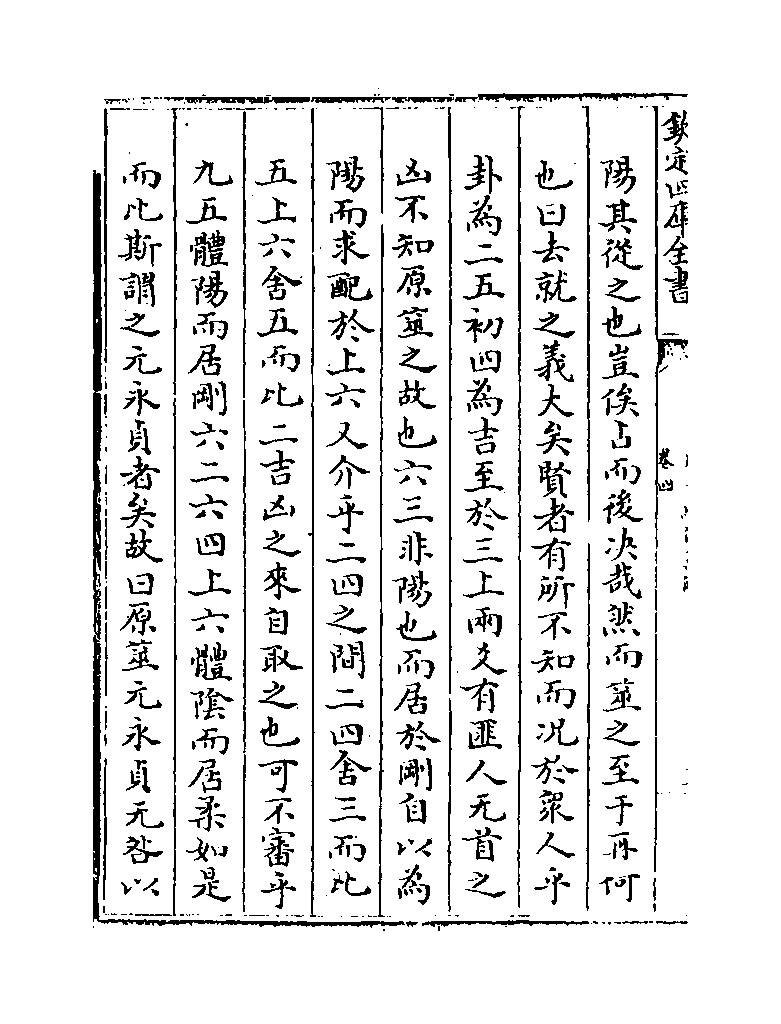 欽定四庫全書
卷四
陽其從之也豈俟占而後決哉然而筮之至于再何
也曰去就之義大矣賢者有所不知而况於衆人乎
卦為二五初四為吉至於三上兩爻有匪人无首之
凶不知原筮之故也六三非陽也而居於剛自以為
陽而求配於上六又介乎二四之間二四舍三而比
五上六舍五而比二吉凶之來自取之也可不審乎
九五體陽而居剛六二六四上六體陰而居柔如是
而比斯謂之元永貞者矣故曰原筮元永貞无咎以